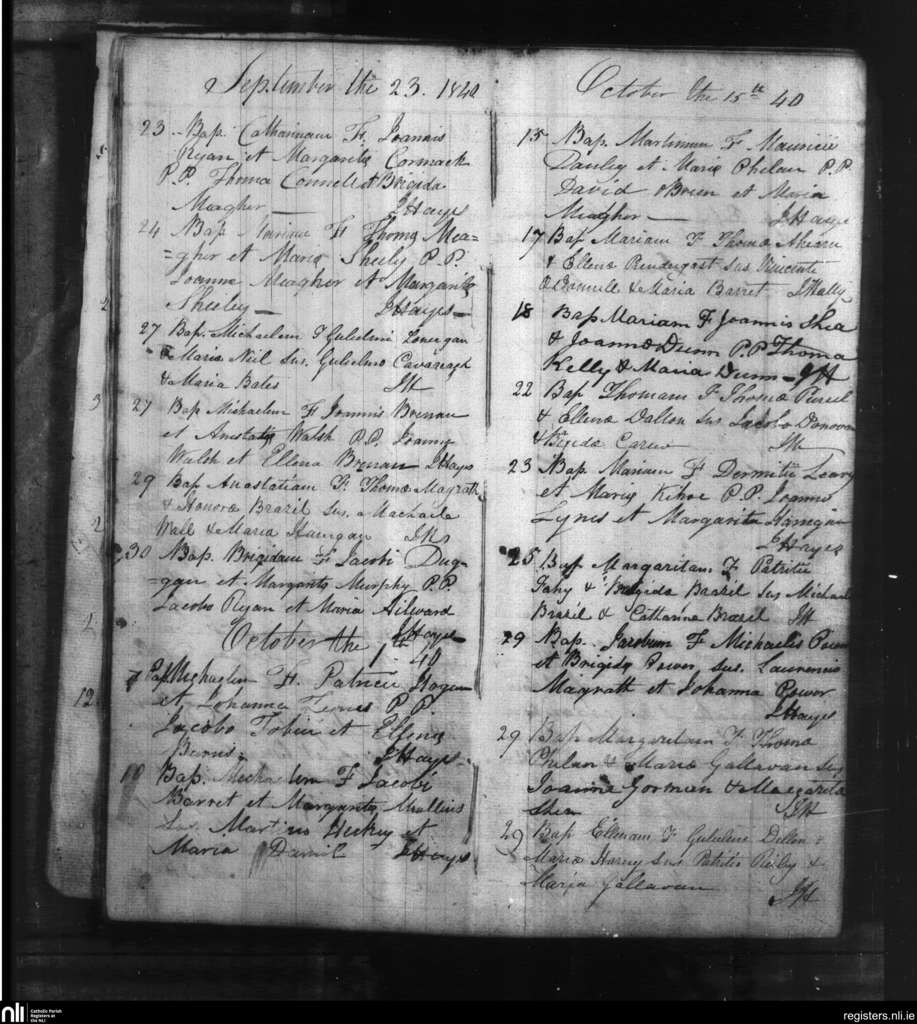 September the 23. 1840
23 Bap. Catharinam F. Joannis
Ryan et Margarita Cormack
P.P. Thoma Connell et Brigida
Meagher — J Hayes
24 Bap F Thoma Mea=
=gher et Maria Sheely P.P.
Joanne Meagher et Margarita
Sheeley — J Hayes —
27 Bap. Michaelem F Gulielmi Lonergan
& Maria Neil Sus. Gulielmo Cavanagh
& Maria Bates JH
27 Bap Michaelem F Joannis Brenan
et Anastatia Walsh P.P. Joanne
Walsh et Ellena Brenan J Hayes
29 Bap Anastatiam F. Thomæ Magrath
& Honoræ Brazil Sus. Machaele
Wall & Maria Hanigan
30 Bap. Brigidam F Jacobi Dug=
=gan et Margarita Murphy P.P.
Jacobo Ryan et Maria Ailward
J Hayes
October the 1th 40
7 Bap Michaelem F. Patricii Hogan
et Johanna P P
Jacobo Tobin et Ellena
J Hayes
10 Bap. Michaelem F Jacobi
Barret et Margarita Mullins
Sus. Martino Hickey et
Maria Daniel J Hayes
October the 15th 40
15 Bap Martinum F Mauricii
Dauley et Maria Phelan P.P.
David OBrien et Maria
Meagher — J Hayes
17 Bap Mariam F Thomæ Ahearn
& Ellenæ Prendergast Sus Vincente
O Donnell & Maria Barret J Hally
18 Bap Mariam F Joannis Shea
& Joannæ Dunn P.P Thoma
Kelly & Maria Dunn — JH
22 Bap Thomam F Thomæ Purcel
& Ellenæ Dalton Sus Jacobo Donovan
& Brigida Carew JH
23 Bap Mariam F Dermitii Leary
et Maria Kehoe P.P. Joanne
Lynes et Margarita Hanigan
J Hayes
25 Bap Margaritam F Patritii
Fahy & Brigida Brazil Sus Michael
Brazil & Catharine Brazil JH
29 Bap. Jacobum F Michaelis Power
et Brigida Power, Sus. Laurencio
Magrath et Johanna Power
J Hayes
29 Bap Margaritam F Thoma
Phelan & Maria Gallavan Sus
Joanne Gorman & Margarita
Shea JH
29 Bap Ellenam F Gulielmi Dillon
Maria Harney Sus Patritio Reilly &
Maria Gallavan
JH
nli
Catholic Parish
Registers at
the NLI
registers.nli.ie